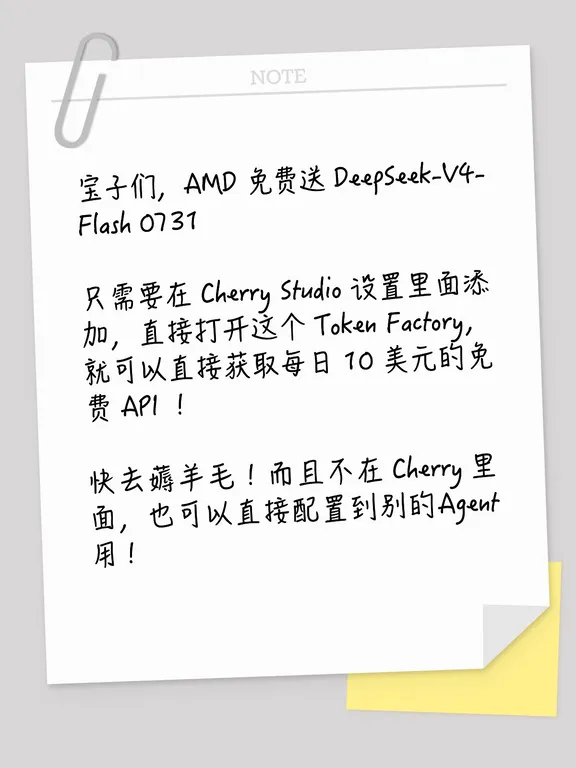 NOTE
宝子们，AMD 免费送 DeepSeek-V4-
Flash 0731
只需要在 Cherry Studio 设置里面添
加，直接打开这个 Token Factory，
就可以直接获取每日 10 美元的免
费 API ！
快去薅羊毛！而且不在 Cherry 里
面，也可以直接配置到别的Agent
用！